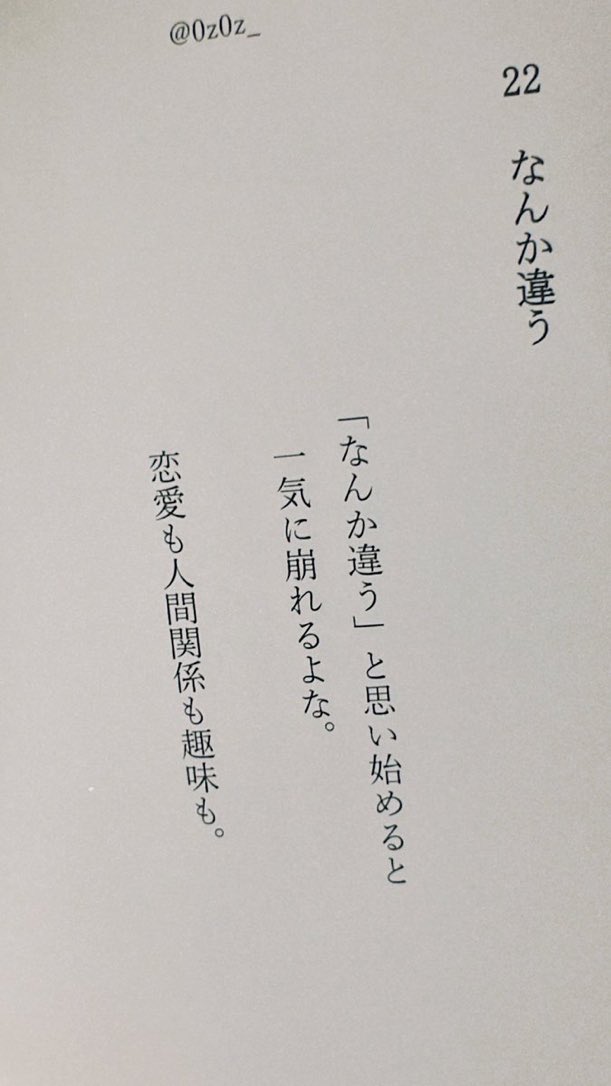 @0z0z_
22 なんか違う
「なんか違う」と思い始めると
一気に崩れるよな。
恋愛も人間関係も趣味も。